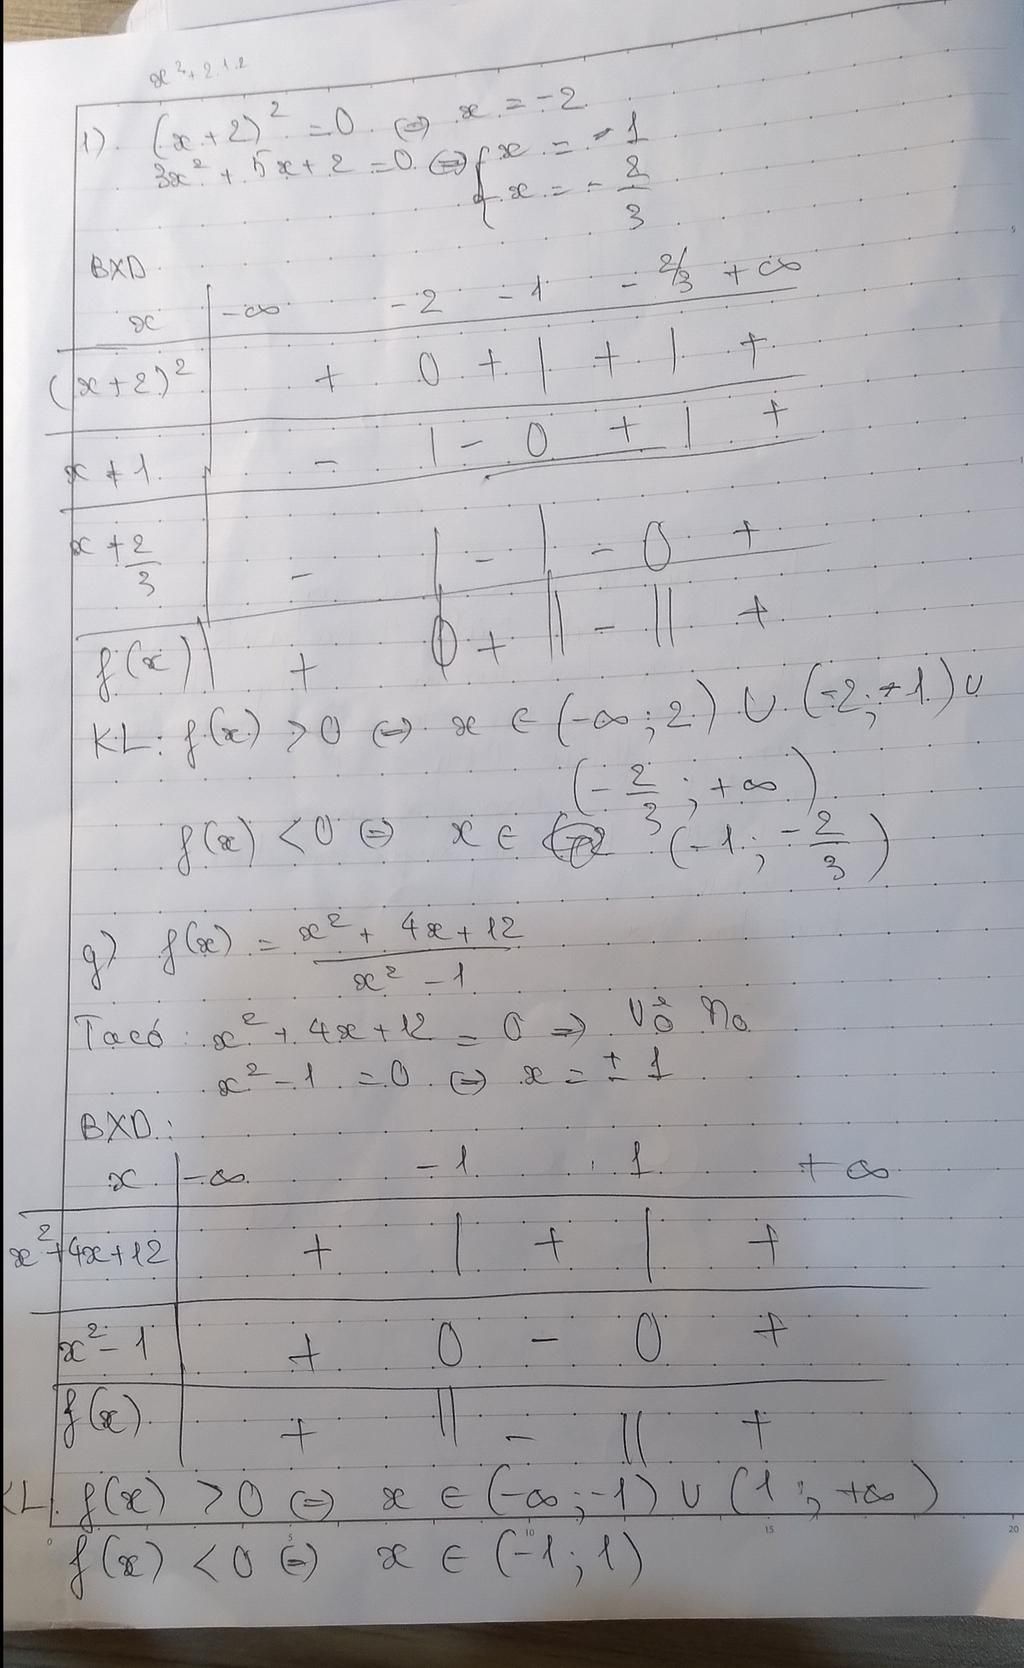 x² + 2.1.2
1). (x+2)² = 0 ⇔ x = -2
3x² + 5x + 2 = 0 ⇔ { x = -1
x = - 2/3
BXD
x | -∞ -2 -1 - 2/3 +∞
(x+2)² | + 0 + | + | +
x + 1 | - | - 0 + | +
x + 2/3 | - | - | - 0 +
f(x) | + 0 + || - || +
KL: f(x) > 0 ⇔ x ∈ (-∞; 2) ∪ (-2; -1) ∪
(- 2/3; +∞)
f(x) < 0 ⇔ x ∈ (-1; - 2/3)
g) f(x) = (x² + 4x + 12)/(x² - 1)
Ta có: x² + 4x + 12 = 0 ⇒ Vô no
x² - 1 = 0 ⇔ x = ± 1
BXD:
x | -∞ -1 1 +∞
x² + 4x + 12 | + | + | +
x² - 1 | + 0 - 0 +
f(x) | + || - || +
KL: f(x) > 0 ⇔ x ∈ (-∞; -1) ∪ (1; +∞)
0 5 10 15 20
f(x) < 0 ⇔ x ∈ (-1; 1)